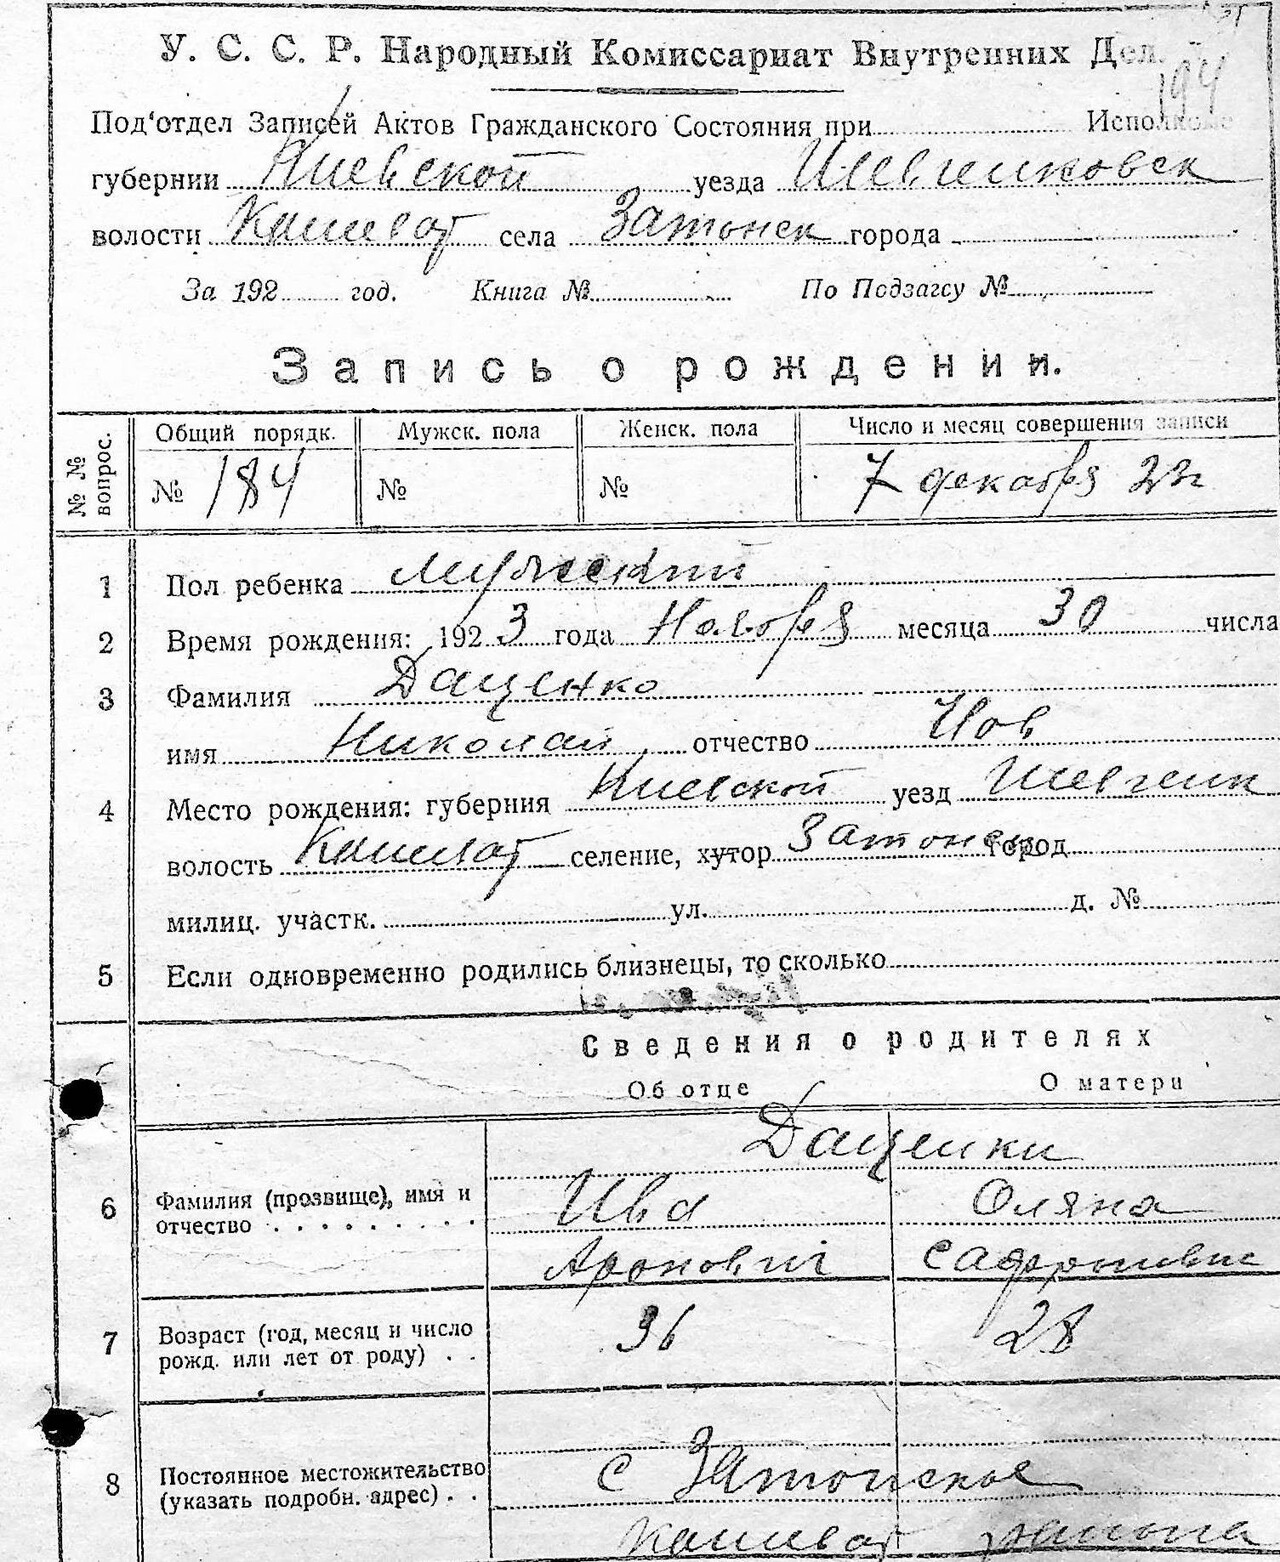 У. С. С. Р. Народный Комиссариат Внутренних Дел.
194
Под'отдел Записей Актов Гражданского Состояния при Исполкоме
губернии Киевской уезда Шевченковск
волости Кашеват села Затонск города
За 192 год. Книга № По Подзагсу №
Запись о рождении.
№ № вопрос. Общий порядк. Мужск. пола Женск. пола Число и месяц совершения записи
№ 184 № № 7 декабря 23г
1 Пол ребенка мужский
2 Время рождения: 1923 года Ноября месяца 30 числа
3 Фамилия Даценко
имя Николай отчество Иов
4 Место рождения: губерния Киевской уезд Шевченк
волость Кашеват селение, хутор Затонск город
милиц. участк. ул. д. №
5 Если одновременно родились близнецы, то сколько
Сведения о родителях
Об отце О матери
Даценки
6 Фамилия (прозвище), имя и Ива Оляна
отчество Ароновичі Сафроновне
7 Возраст (год, месяц и число 36 28
рожд. или лет от роду)
8 Постоянное местожительство с Затонское
(указать подробн. адрес)
Кашеват района